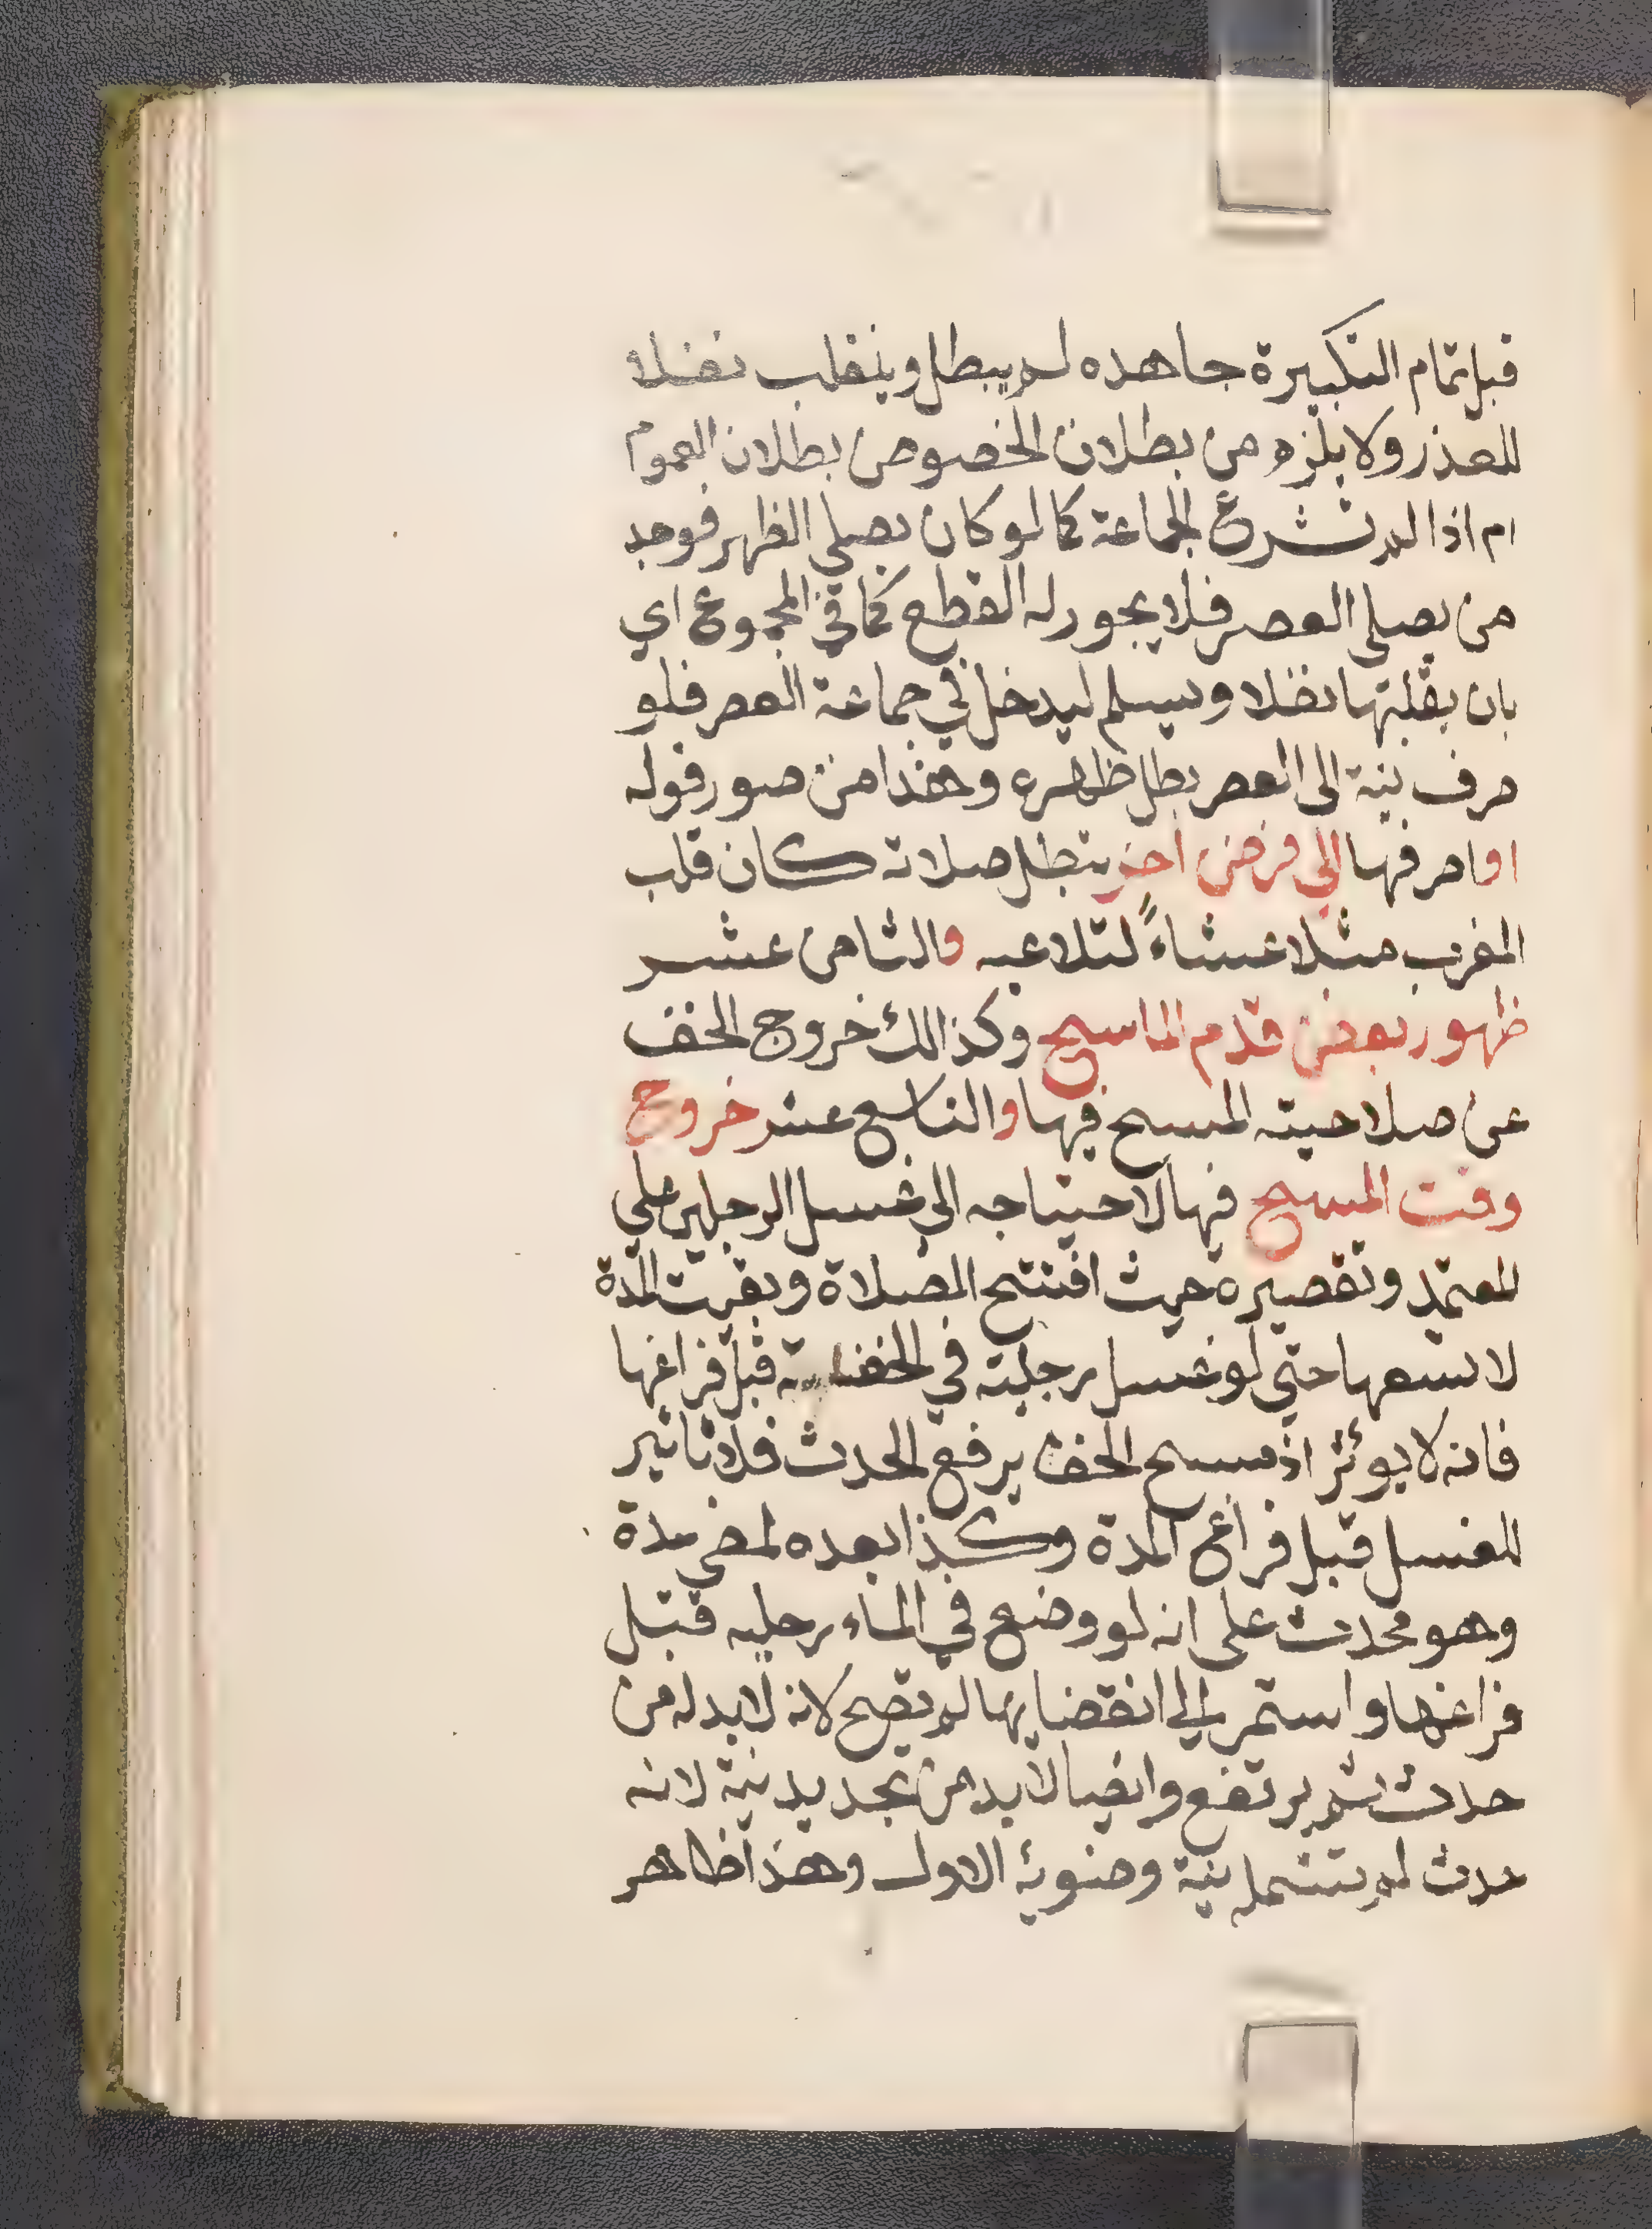 قبل تمام التكبيرة جاهده لم يبطل وينقلب نفلا
للعذر ولا يلزم من بطلان الخصوص بطلان العموم
ام اذا لم تشرع الجماعة كما لو كان يصلي الظهر فوجد
من يصلي العصر فلا يجوز له القطع كما في المجموع اي
بان يقلبها نفلا ويسلم ليدخل في جماعة العصر فلو
صرف نية الى العصر بطل ظهره وهذا من صور قوله
او صرفها الي فرض اخر بتطل صلاته كان قلب
المغرب مثلا عشاءً لتلاعبه والثامن عشر
ظهور بعض قدم الماسح وكذالك خروج الخف
عن صلاحيته المسح فيها والتاسع عشر خروج
وقت المسح فيها لاحتياجه الي غسل الرجلين علي
المعتمد وتقصيره حيث افتتح الصلاة وبقيت المدة
لا تسعها حتي لو غسل رجليه في الخف قبل فراغها
فانه لا يوئثر اذ مسح الخف يرفع الحدث فلا تاثير
للغسل قبل فراغ المدة وكذا بعده لمضي مدة
وهو محدث على انه لو وضع في الماء رجليه قبل
فراغها واستمر الي انقضايها لم تصح لانه لابد له من
حدث ثم يرتفع وايضا لا بد من تجديد نية لانه
حدث لم تشمله نية وضنوئه الاول وهذا ظاهر